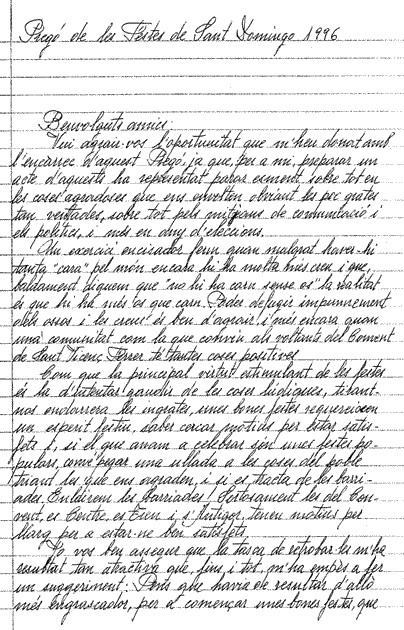 Pregó de les Festes de Sant Domingo 1996
Benvolguts amics:
Vui agrair-vos l'oportunitat que m'heu donat amb
l'encàrrec d'aquest Pregó, ja que, per a mi, preparar un
acte d'aquests ha representat parar esment, sobre tot en
les coses agradoses que ens envolten, obviant les poc grates
tan ventades, sobre tot pels mitjans de comunicació i
els polítics, i més en any d'eleccions.
Un exercici encisador ferm quan malgrat haver-hi
tanta "cara" pel món encara hi ha molta més creu i que,
baldament diguem que "no hi ha carn sense os" la realitat
és que hi ha més os que carn. Poder defugir impunement
dels ossos i les creus és ben d'agrair, i més encara quan
una comunitat com la que conviu als voltants del Convent
de Sant Vicenç Ferrer té tantes coses positives.
Com que la principal virtut estimulant de les festes
és la d'intentar gaudir de les coses lúdiques, tirant-
nos endarrera les ingrates, unes bones festes requereixen
un esperit festiu, saber cercar motius per estar satis-
fets i, si el que anam a celebrar són unes festes po-
pulars, convé pegar una ullada a les coses del poble
triant les que ens agraden, i si es tracta de les barri-
ades. Enldirem les barriades! Sortosament les del Con-
vent, es Centre, es Creu i s'Antigor, tenen motius per
llarg per a estar-ne ben satisfets.
Jo, vos ben assegur que la tasca de retrobar-les m'ha
resultat tan atractiva que, fins i tot, m'ha empès a fer
un suggeriment: Pens que havia de resultar d'allò
més engrescador, per a començar unes bones festes, que